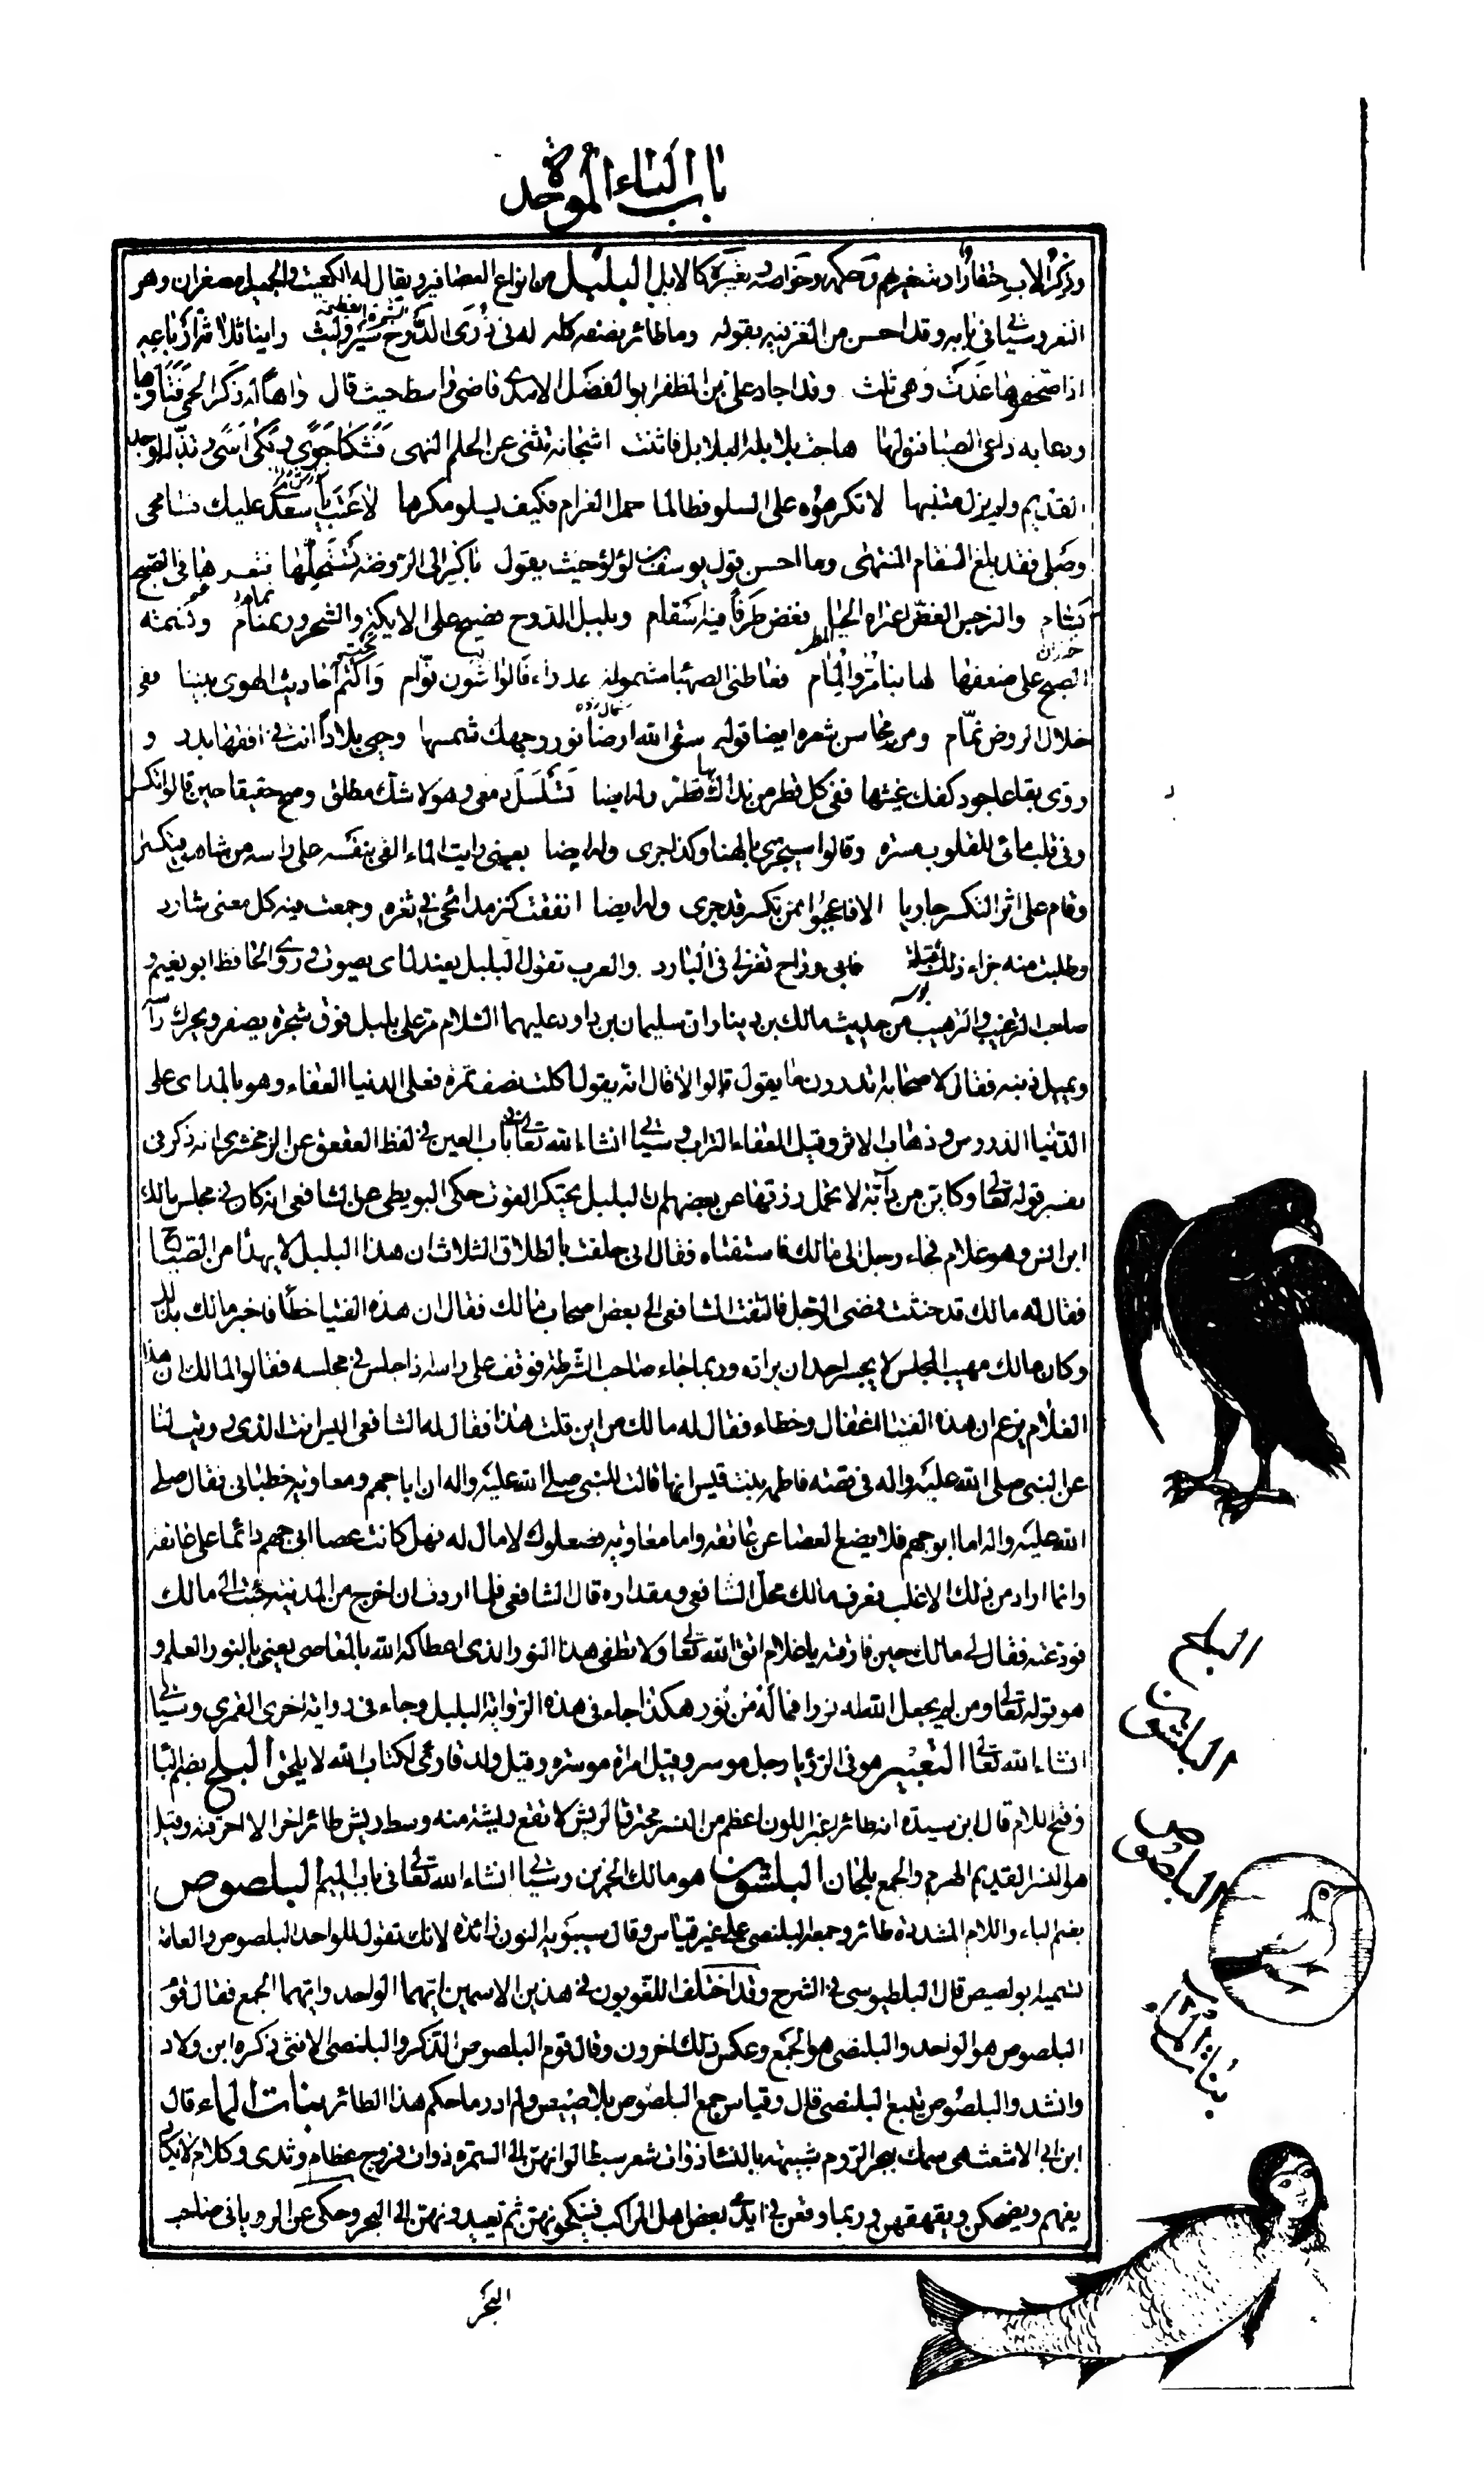 باب الباء الموحدة
وذكر الاب خنفار او شخيرهم وحكمه وخواصه وتعبيره كالابل البلبل من انواع العصافير ويقال له الكعيت والجميل مصغران وهو
النغر وسياتي في بابه وقد احسن من الغز فيه بقوله وما طائر نصفه كله له في ذرى الدوح سير ولبث راينا ثلاثة ارباعه
اذا صحفوها غدت وهي ثلث وقد اجاد علي بن المظفر ابو الفضل الامدي قاضي واسط حيث قال واها له ذكر الحمى فتاوها
ودعا به داعي الصبا فتولها هاجت بلابله البلابل فانثنت اشجانه تثني عن الحلم النهى فشكا جوى وبكى اسى وتنبه الوجد
القديم ولم يزل متنبها لا تكرهوه على السلو فطالما حمل الغرام فكيف يسلو مكرها لا عتب يا سعد عليك فسامحي
وصلي فقد بلغ السقام المنتهى وما احسن قول يوسف بن لؤلؤ حيث يقول باكر الى الروضة تستجلها فثغرها في الصبح
بسام والنرجس الغض اعتراه الحيا فغض طرفا فيه اسقام وبلبل الدوح فصيح على الايكة والشحرور تمتام ونسمة
الصبح على ضعفها لها بنا مر والمام فعاطني الصهبا مشمولة عذراء فالواشون نوام واكتم احاديث الهوى بيننا ففي
خلال الروض نمام ومن محاسن شعره ايضا قوله سقى الله ارضا نور وجهك شمسها وحيى بلادا انت في افقها بدر و
روى بقاعا جود كفك غيثها ففي كل قطر من نداك بها قطر وله ايضا تسلسل دمعي وهو لا شك مطلق وصح حقيقا حين قالوا تكسر
وفي قلب مائي للقلوب مسرة وقالوا سيجري بالهنا وكذا جرى وله ايضا بعيني رايت الماء القى بنفسه على راسه من شاهق فتكسرا
وقام على اثر التكسر جاريا الا فاعجبوا ممن تكسر قد جرى وله ايضا انفقت كنز مدائحي في ثغره وجمعت فيه كل معنى شارد
وطلبت منه جزاء ذلك قبلة فابى وراح تغزلي في البارد والعرب تقول البلبل يعندل اي يصوت وروى الحافظ ابو نعيم و
صاحب الترغيب والترهيب من حديث مالك بن دينار ان سليمان بن داود عليهما السلام مر على بلبل فوق شجرة يصفر ويحرك راسه
ويميل ذنبه فقال لاصحابه اتدرون ما يقول قالوا لا قال انه يقول اكلت نصف تمرة فعلى الدنيا العفاء وهو بالمد اي على
الدنيا الدروس وذهاب الاثر وقيل العفاء التراب وسياتي انشاء الله تعالى في باب العين في لفظ العقعق عن الزمخشري انه ذكر في
تفسير قوله تعالى وكاين من دآبة لا تحمل رزقها عن بعضهم ان البلبل يحتكر القوت حكى البويطي عن الشافعي انه كان في مجلس مالك
ابن انس وهو غلام فجاء رجل الى مالك فاستفتاه فقال اني حلفت بالطلاق الثلاث ان هذا البلبل لا يهدا من الصياح
فقال له مالك قد حنثت فمضى الرجل فالتفت الشافعي الى بعض اصحاب مالك فقال ان هذه الفتيا خطأ فاخبر مالك بذلك
وكان مالك مهيب المجلس لا يجسر احد ان يراده وربما جاء صاحب الشرطة فوقف على راسه اذا جلس في مجلسه فقالوا لمالك ان هذا
الغلام يزعم ان هذه الفتيا اغفال وخطاء فقال له مالك من اين قلت هذا فقال له الشافعي اليس انت الذي رويت لنا
عن النبي صلى الله عليه واله في قصة فاطمة بنت قيس انها قالت للنبي صلى الله عليه واله ان ابا جهم ومعاوية خطباني فقال صلى
الله عليه واله اما ابو جهم فلا يضع العصا عن عاتقه واما معاوية فصعلوك لا مال له فهل كانت عصا ابي جهم دائما على عاتقه
وانما اراد من ذلك الاغلب فعرف مالك محل الشافعي ومقداره قال الشافعي فلما اردت ان اخرج من المدينة جئت الى مالك
فودعته فقال لي مالك حين فارقته يا غلام اتق الله تعالى ولا تطفئ هذا النور الذي اعطاكه الله بالمعاصي يعني بالنور العلم و
هو قوله تعالى ومن لم يجعل الله له نورا فما له من نور هكذا جاء في هذه الرواية البلبل وجاء في رواية اخرى القمري وسياتي
انشاء الله تعالى التعبير هو في الرؤيا رجل موسر وقيل امراة موسرة وقيل ولد قارئ لكتاب الله لا يلحق البلح بضم البا
وفتح اللام قال ابن سيدة انه طائر اغبر اللون اعظم من النسر محترق الريش لا تقع ريشة منه وسط ريش طائر اخر الا احرقته وقيل
هو النسر القديم الهرم والجمع بلحان البلشون هو مالك الحزين وسياتي انشاء الله تعالى في باب الميم البلصوص
بضم الباء واللام المشددة طائر وجمعه البلنصى على غير قياس وقال سيبويه النون زائدة لانك تقول للواحد البلصوص والعامة
تسميه ابو لصيص قال البطليوسي في الشرح وقد اختلف اللغويون في هذين الاسمين ايهما الواحد وايهما الجمع فقال قوم
البلصوص هو الواحد والبلنصى هو الجمع وعكس ذلك اخرون وقال قوم البلصوص الذكر والبلنصى الانثى ذكره ابن ولاد
وانشد والبلصوص يتبع البلنصى قال وقياس جمع البلصوص بلاصيص ولم ادر ما حكم هذا الطائر بنات الماء قال
ابن ابي الاشعث هي سمك ببحر الروم شبيهة بالنساء ذوات شعر سبط الوانهن الى السمرة ذوات فروج عظام وثدى وكلام لا يكاد
يفهم ويضحكن ويقهقهن وربما وقعن في ايدي بعض اهل المراكب فينكحونهن ثم يعيدونهن الى البحر وحكى عن الروياني صاحب
البحر
البلح
البلشون
البلصوص
بنات الماء